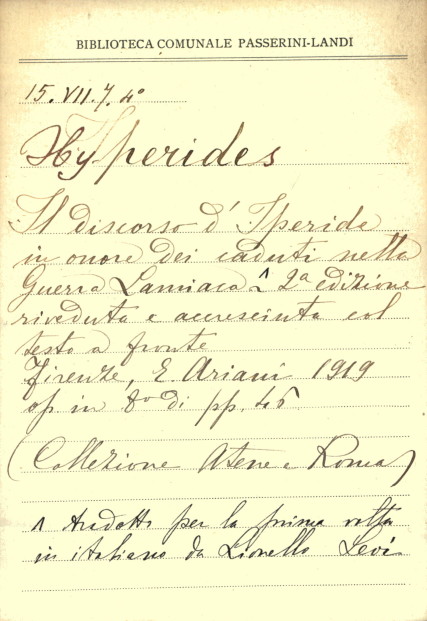 BIBLIOTECA COMUNALE PASSERINI-LANDI
15. VII. 7. 4º
Hyperides
Il discorso d'Iperide
in onore dei caduti nella
Guerra Lamiaca ^ 2ª edizione
riveduta e accresciuta col
testo a fronte
Firenze, E. Ariani 1919
op. in 8º di pp. 45
(Collezione Atene e Roma)
^ tradotto per la prima volta
in italiano da Lionello Levi